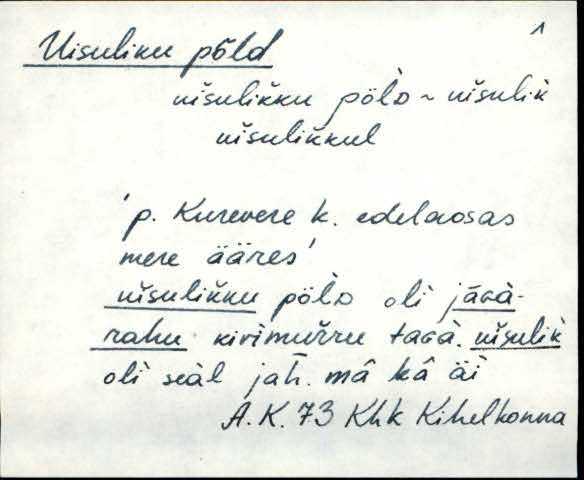 1
Uisuliku põld
uìsulikku põlD ~ uìsulik
uìsulikkul
'p. Kurevere k. edelaosas
mere ääres'
uìsulikku põlD oli
rahu kivimurru taga. uìsulik
oli seal jah. mâ kâ äi
A.K. 73 Khk Kihelkonna